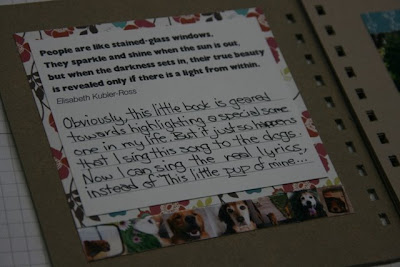 People are like stained-glass windows.
They sparkle and shine when the sun is out,
but when the darkness sets in, their true beauty
is revealed only if there is a light from within.
Elisabeth Kubler-Ross
Obviously, this little book is geared
towards highlighting a special some
one in my life. But it just so happens
that I sing this song to the dogs.
Now I can sing the real lyrics,
instead of "This little pup of mine...